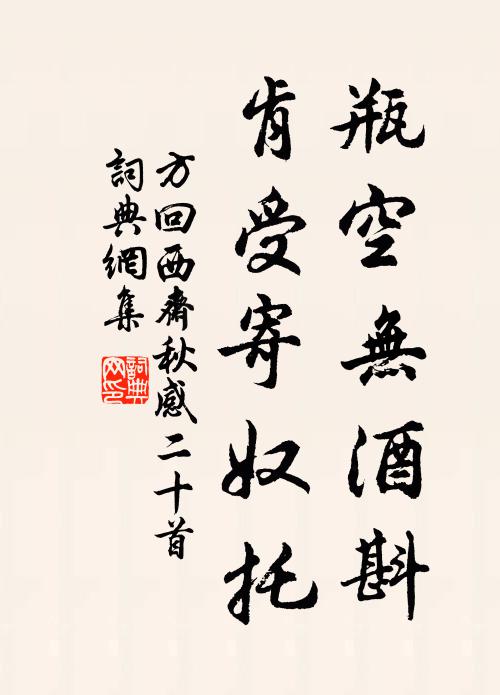 瓶空無酒斟
肯受寄奴托
方回西齋秋感二十首
詞典網集
詞典网印